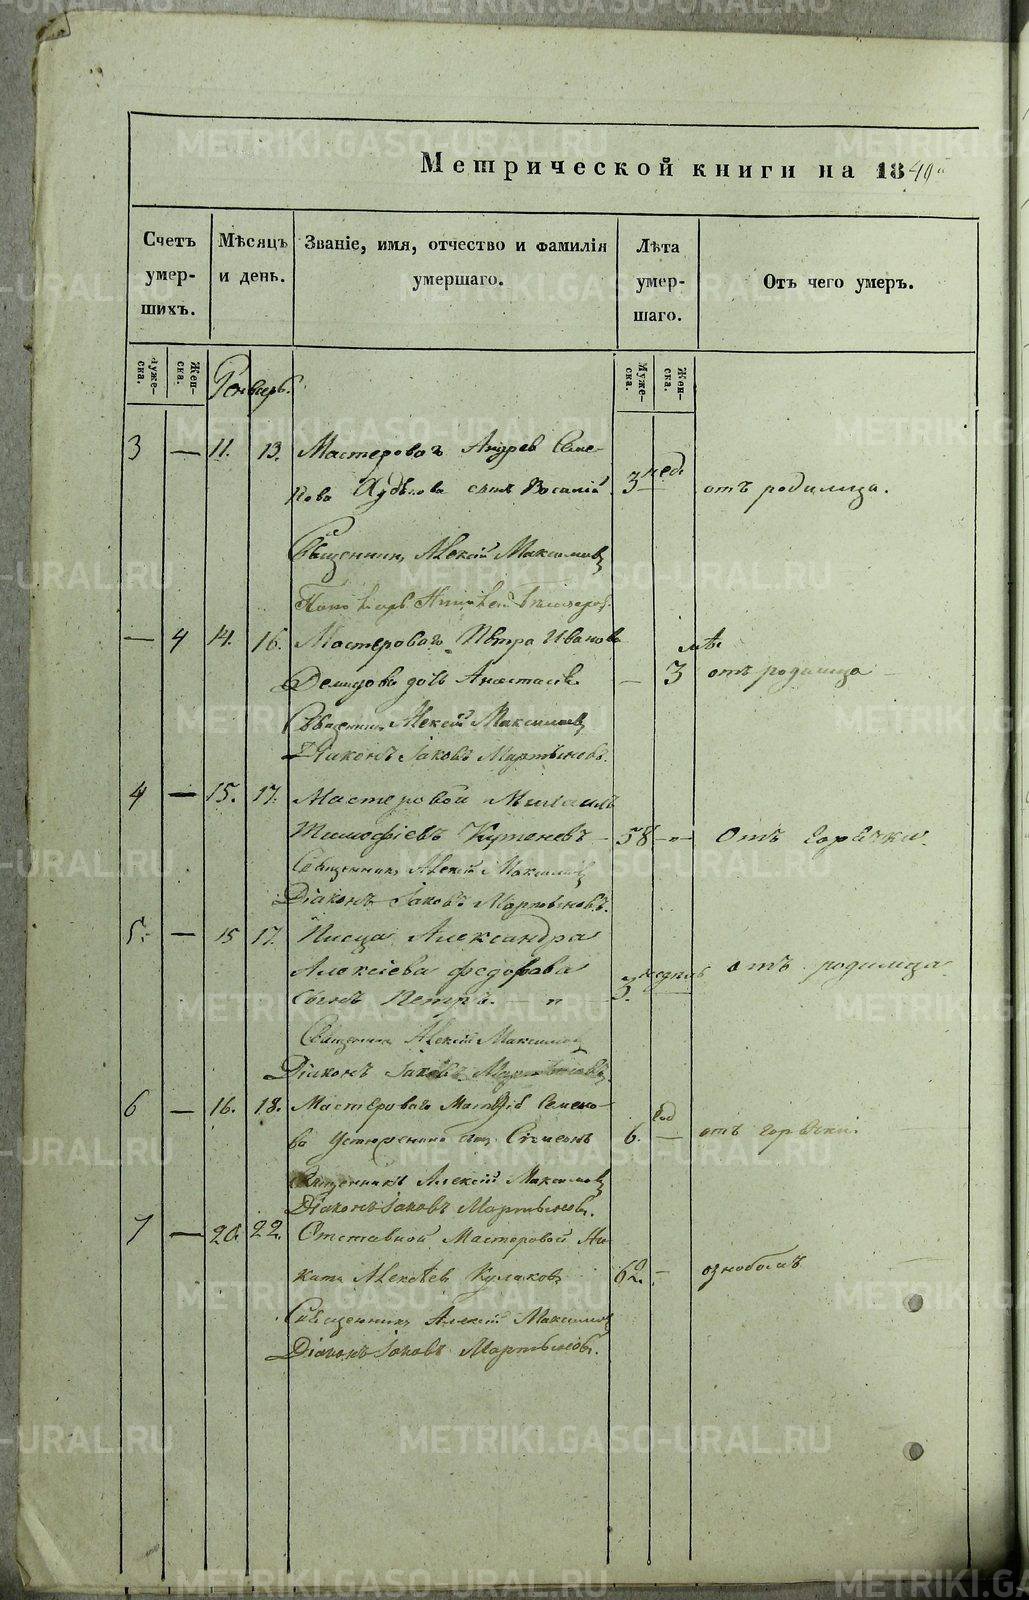 Метрической книги на 1840
Счетъ умер-шихъ.
Мѣсяцъ и день.
Званіе, имя, отчество и фамилія умершаго.
Лѣта умер-шаго.
Отъ чего умеръ.
Муже-ска.
Жен-ска.
Генварь.
Муже-ска.
Жен-ска.
3 — 11. 13. Мастероваго Андрея Семе-
нова сынъ Василій 3 нед. отъ родимца.
Священникъ Алексій Максимовъ
— 4 14. 16. Мастероваго Петра Иванова
Демидова дочь Анастасія — 3 отъ родимца
Священникъ Алексій Максимовъ
Діаконъ Іаковъ Мартыновъ.
4 — 15. 17. Мастеровой Михаилъ
Тимофіевъ Кутеневъ 58 — Отъ горячки.
Священникъ Алексій Максимовъ
Діаконъ Іаковъ Мартыновъ.
5. — 15 17. Писца Александра
Алексіева Федорова 3 недѣль отъ родимца
сынъ Петръ.
Священникъ Алексій Максимовъ
Діаконъ Іаковъ Мартыновъ
6 — 16. 18. Мастероваго Матвѣя Семено-
ва сынъ Симеонъ 6. год — отъ горячки.
Священникъ Алексій Максимовъ
Діаконъ Іаковъ Мартыновъ.
7 — 20. 22. Отставной Мастеровой Ни-
кита Алексѣевъ Кулаковъ 62. — ознобомъ
Священникъ Алексій Максимовъ
Діаконъ Іаковъ Мартыновъ.
METRIKI.GASO-URAL.RU